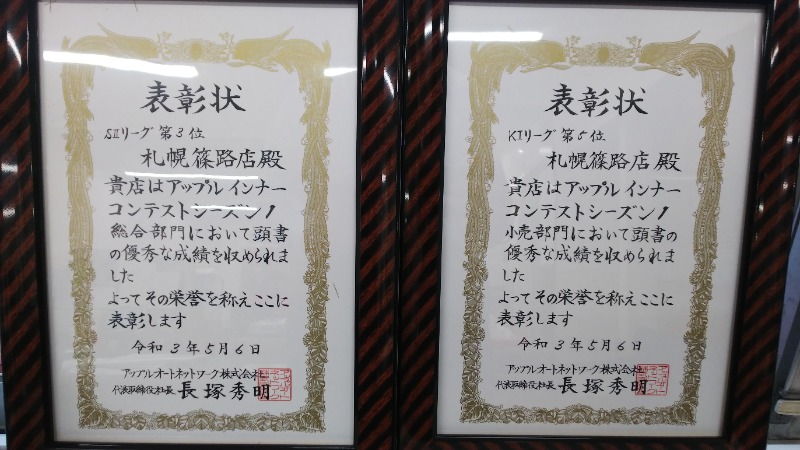 表彰状
SⅡリーグ 第3位
札幌篠路店殿
貴店はアップルインナー
コンテストシーズン1
総合部門において頭書
の優秀な成績を収められま
した
よってその栄誉を称えここに
表彰します
令和3年5月6日
アップルオートネットワーク株式会社
代表取締役社長 長塚秀明
表彰状
K1リーグ 第5位
札幌篠路店殿
貴店はアップルインナー
コンテストシーズン1
小売部門において頭書の
優秀な成績を収められま
した
よってその栄誉を称えここに
表彰します
令和3年5月6日
アップルオートネットワーク株式会社
代表取締役社長 長塚秀明